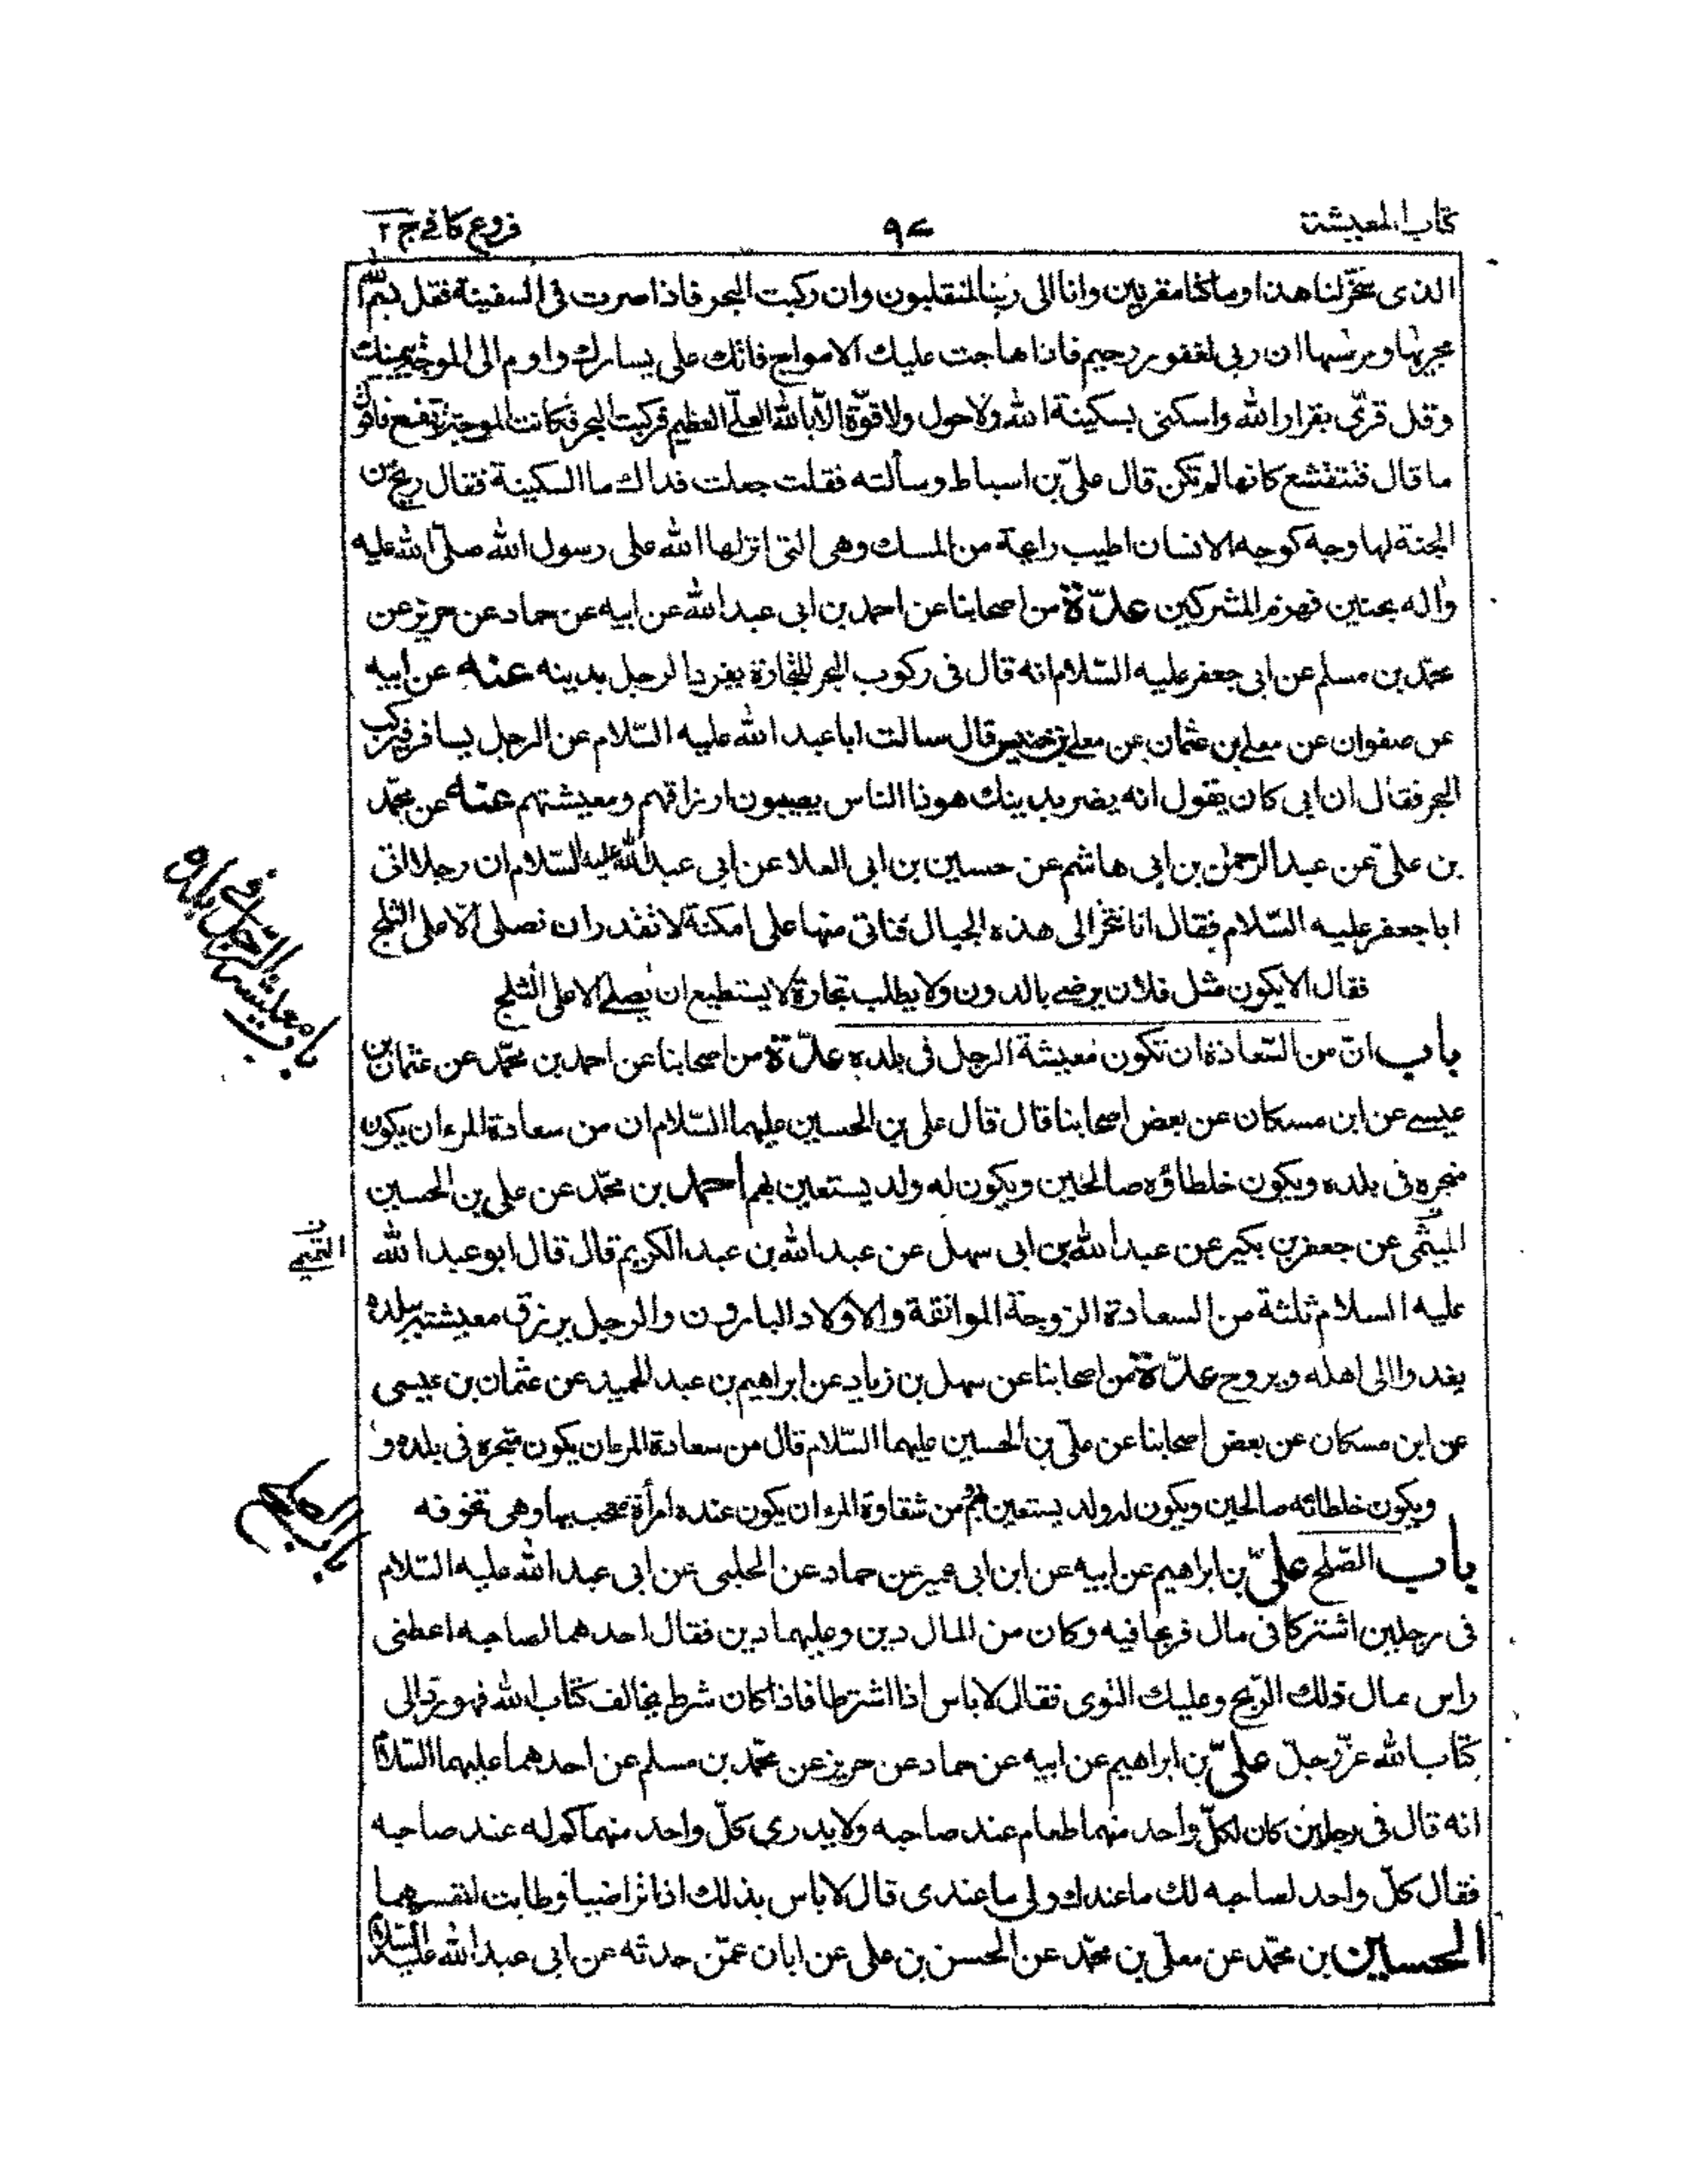 كتاب المعيشة
فروع كافى ج ٢
الذى سخر لنا هذا وما كنا مقرنين وانا الى ربنا لمنقلبون وان ركبت البحر فاذا صرت فى السفينة فقل بسم الله
مجريها ومرسيها ان ربى لغفور رحيم فاذا هاجت عليك الامواج فاتك على يسارك واوم الى الموجة بيمينك
وقل قرّى بقرار الله واسكنى بسكينة الله ولا حول ولا قوّة الّا بالله العلىّ العظيم فركبت البحر فكانت الموجة ترتفع فاقول
ما قال فتتقشع كانها لم تكن قال علىّ بن اسباط وسألته فقلت جعلت فداك ما السكينة فقال ريح من
الجنة لها وجه كوجه الانسان اطيب رائحة من المسك وهى التى انزلها الله على رسول الله صلّى الله عليه
وآله بحنين فهزم المشركين عدّة من اصحابنا عن احمد بن ابى عبد الله عن ابيه عن حماد عن حريز عن
محمّد بن مسلم عن ابى جعفر عليه السّلام انه قال فى ركوب البحر للتجارة يغرر الرجل بدينه عنه عن ابيه
عن صفوان عن معلى بن عثمان عن معلى بن خنيس قال سالت ابا عبد الله عليه السّلام عن الرجل يسافر فيركب
البحر فقال ان ابى كان يقول انه يضر بدينك هو ذا الناس يصيبون ارزاقهم ومعيشتهم عنه عن محمّد
بن علىّ عن عبد الرحمٰن بن ابى هاشم عن حسين بن ابى العلا عن ابى عبد الله عليه السّلام ان رجلا اتى
ابا جعفر عليه السّلام فقال انا نتجر الى هذه الجبال فناتى منها على امكنة لا نقدر ان نصلى الّا على الثلج
فقال الا يكون مثل فلان يرضى بالدون ولا يطلب تجارة لا يستطيع ان يصلى الا على الثلج
باب انّ من السّعادة ان تكون معيشة الرجل فى بلده عدّة من اصحابنا عن احمد بن محمّد عن عثمان بن
عيسى عن ابن مسكان عن بعض اصحابنا قال قال على بن الحسين عليهما السّلام ان من سعادة المرء ان يكون
متجره فى بلده ويكون خلطاؤه صالحين ويكون له ولد يستعين بهم احمد بن محمّد عن على بن الحسين
الميثمى عن جعفر بن بكير عن عبد الله بن ابى سهل عن عبد الله بن عبد الكريم قال قال ابو عبد الله
التميمى
عليه السلام ثلثة من السعادة الزوجة الموافقة والاولاد البارون والرجل يرزق معيشته ببلده
يغدوا الى اهله ويروح عدّة من اصحابنا عن سهل بن زياد عن ابراهيم بن عبد الحميد عن عثمان بن عيسى
عن ابن مسكان عن بعض اصحابنا عن علىّ بن الحسين عليهما السّلام قال من سعادة المرء ان يكون متجره فى بلده و
ويكون خلطائه صالحين ويكون له ولد يستعين بهم ومن شقاوة المرء ان يكون عنده امرأة معجب بها وهى تخونه
باب الصّلح علىّ بن ابراهيم عن ابيه عن ابن ابى عمير عن حماد عن الحلبى عن ابى عبد الله عليه السّلام
فى رجلين اشتركا فى مال فربحا فيه وكان من المال دين وعليهما دين فقال احدهما لصاحبه اعطنى
راس مال ذلك الرّبح وعليك التوى فقال لا باس اذا اشترطا فاذا كان شرط يخالف كتاب الله فهو ردّ الى
كتاب الله عزّ وجلّ علىّ بن ابراهيم عن ابيه عن حماد عن حريز عن محمّد بن مسلم عن احدهما عليهما السّلام
انه قال فى رجلين كان لكلّ واحد منهما طعام عند صاحبه ولا يدرى كلّ واحد منهما كم له عند صاحبه
فقال كلّ واحد لصاحبه لك ما عندك ولى ما عندى قال لا باس بذلك اذا تراضيا وطابت انفسهما
الحسين بن محمّد عن معلّى بن محمّد عن الحسن بن على عن ابان عمّن حدثه عن ابى عبد الله عليه السّلام
باب معيشة الرجل فى بلده
باب الصلح